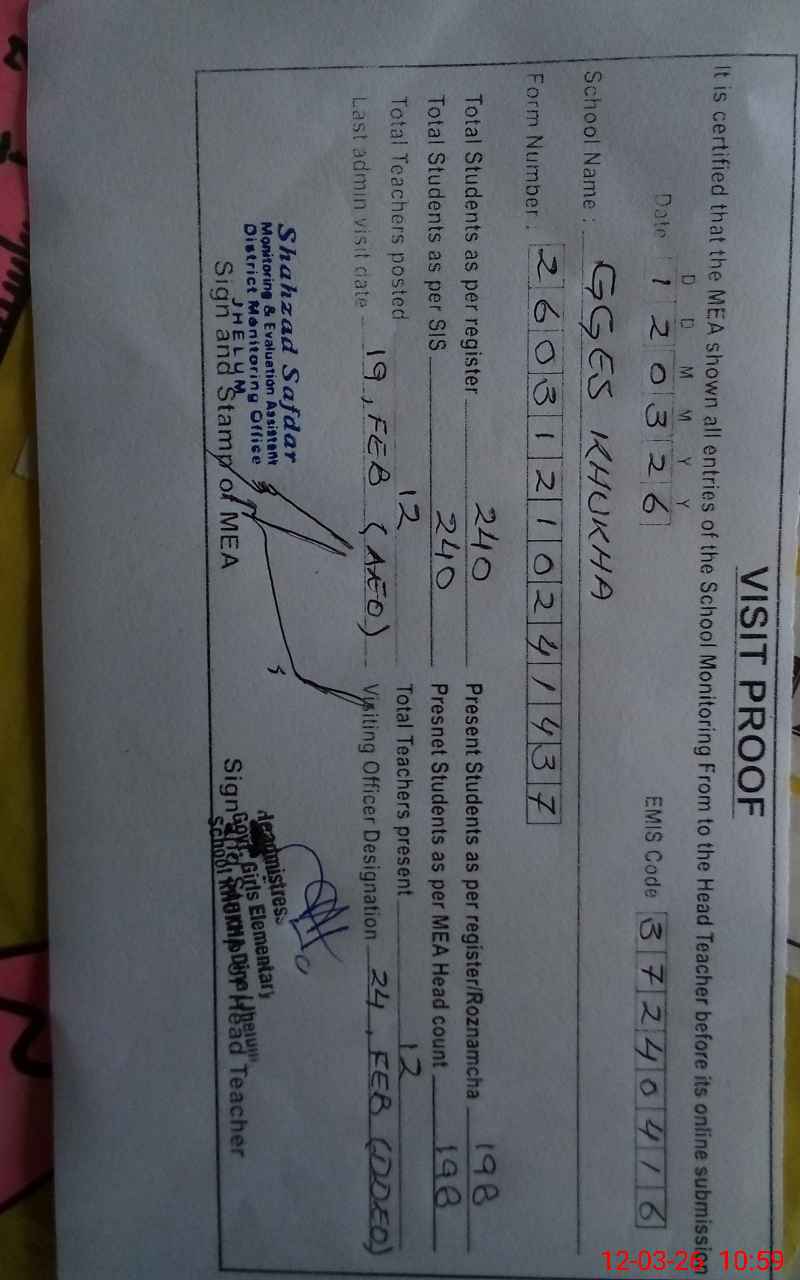 VISIT PROOF
It is certified that the MEA shown all entries of the School Monitoring From to the Head Teacher before its online submission
D D M M Y Y
Date 1 2 0 3 2 6 EMIS Code 3 7 2 4 0 4 1 6
School Name : GGES KHUKHA
Form Number : 2 6 0 3 1 2 1 0 2 4 1 4 3 7
Total Students as per register 240 Present Students as per register/Roznamcha 198
Total Students as per SIS 240 Presnet Students as per MEA Head count 198
Total Teachers posted 12 Total Teachers present 12
Last admin visit date 19, FEB (AEO) Visiting Officer Designation 24, FEB (DDEO)
Shahzad Safdar
Monitoring & Evaluation Assistant
District Monitoring Office
JHELUM
Sign and Stamp of MEA
Headmistress
Govt. Girls Elementary
School
Sign Head Teacher
12-03-26 10:59